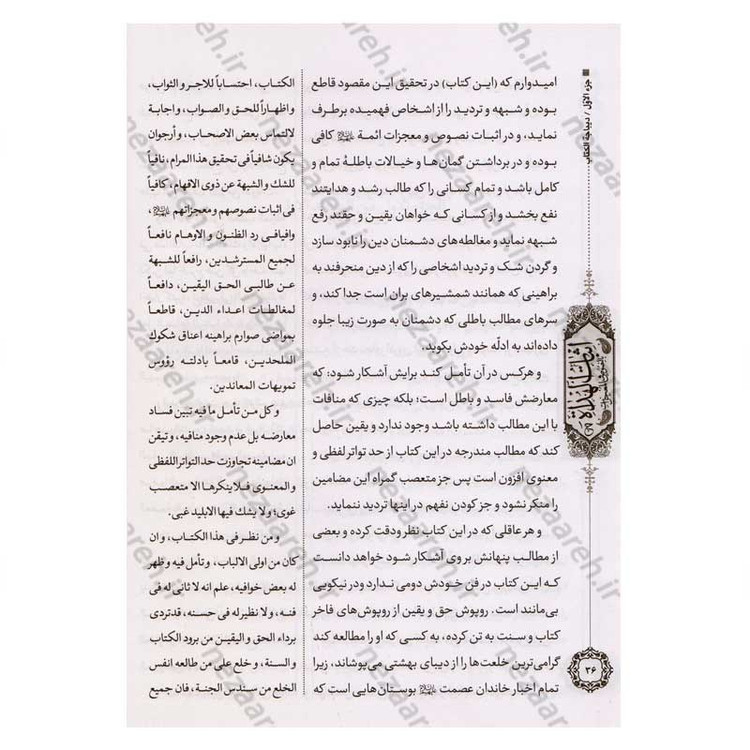 جزء الاوّل / دیباجة الکتاب
امیدوارم که (این کتاب) در تحقیق این مقصود قاطع
بوده و شبهه و تردید را از اشخاص فهمیده برطرف
نماید، و در اثبات نصوص و معجزات ائمة کافی
بوده و در برداشتن گمان‌ها و خیالات باطلهٔ تمام و
کامل باشد و تمام کسانی را که طالب رشد و هدایتند
نفع بخشد و از کسانی که خواهان یقین و حقند رفع
شبهه نماید و مغالطه‌های دشمنان دین را نابود سازد
و گردن شک و تردید اشخاصی را که از دین منحرفند به
براهینی که همانند شمشیرهای بران است جدا کند، و
سرهای مطالب باطلی که دشمنان به صورت زیبا جلوه
داده‌اند به ادلّه خودش بکوبد.
و هرکس در آن تأمل کند برایش آشکار شود: که
معارضش فاسد و باطل است؛ بلکه چیزی که منافات
با این مطالب داشته باشد وجود ندارد و یقین حاصل
کند که مطالب مندرجه در این کتاب از حد تواتر لفظی و
معنوی افزون است پس جز متعصب گمراه این مضامین
را منکر نشود و جز کودن نفهم در اینها تردید ننماید.
و هر عاقلی که در این کتاب نظر ودقت کرده و بعضی
از مطالب پنهانش بروی آشکار شود خواهد دانست
که این کتاب در فن خودش دومی ندارد ودر نیکویی
بی‌مانند است. روپوش حق و یقین از روپوش‌های فاخر
کتاب و سنت به تن کرده، به کسی که او را مطالعه کند
گرامی‌ترین خلعت‌ها را از دیبای بهشتی می‌پوشاند، زیرا
تمام اخبار خاندان عصمت بوستان‌هایی است که
الکتاب، احتساباً للاجر و الثواب،
و اظهاراً للحق و الصواب، و اجابة
لالتماس بعض الاصحاب، و أرجوان
یکون شافیاً فی تحقیق هذا المرام، نافیاً
للشك والشبهة عن ذوی الافهام، کافیاً
فی اثبات نصوصهم و معجزاتهم،
وافیافی رد الظنون و الاوهام نافعاً
لجمیع المسترشدین، رافعاً للشبهة
عن طالبی الحق الیقین، دافعاً
لمغالطات اعداء الدین، قاطعاً
بمواضی صوارم براهینه اعناق شکوك
الملحدین، قامعاً بادلته رؤوس
تمویهات المعاندین.
و کل من تأمل ما فیه تبین فساد
معارضه بل عدم وجود منافیه، و تیقن
ان مضامینه تجاوزت حد التواتر اللفظی
و المعنوی فلا ینکرها الا متعصب
غوی؛ ولا یشك فیها الابلید غبی.
و من نظر فی هذا الکتاب، و ان
کان من اولی الالباب، و تأمل فیه و ظهر
له بعض خوافیه، علم انه لا ثانی له فی
فنه، ولا نظیر له فی حسنه، قدتردی
برداء الحق و الیقین من برود الکتاب
و السنة، و خلع علی من طالعه انفس
الخلع من سندس الجنة، فان جمیع
اثبات الهداة
۳۶
nezaareh.ir